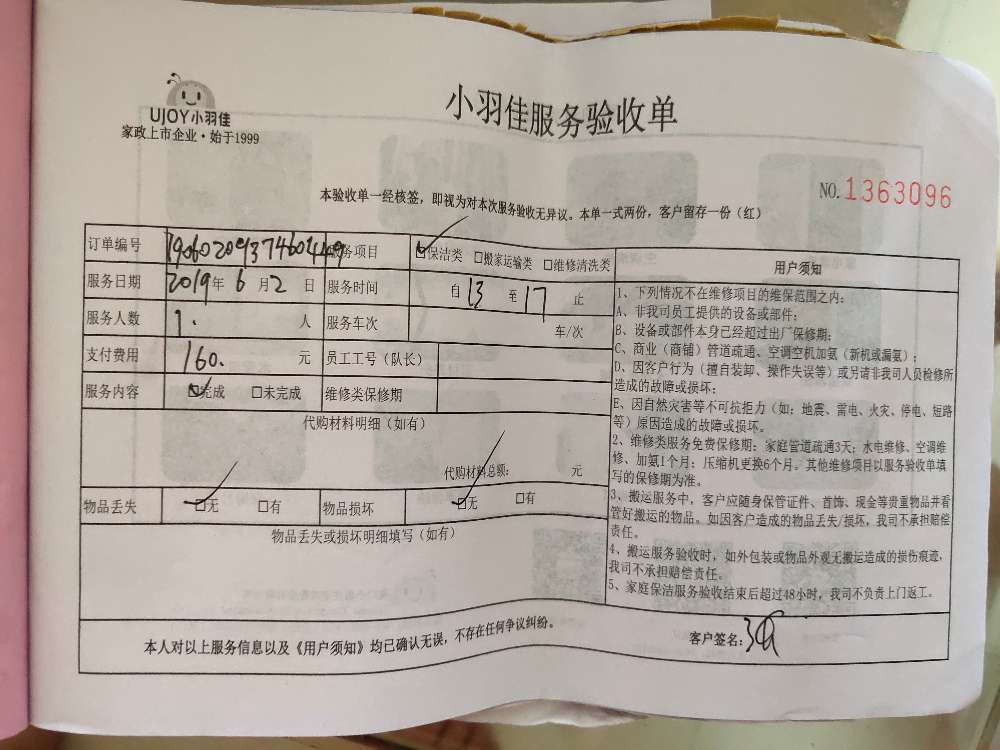 UJOY小羽佳
家政上市企业·始于1999
小羽佳服务验收单
本验收单一经核签，即视为对本次服务验收无异议。本单一式两份，客户留存一份（红）
NO.1363096
订单编号 服务项目 ☑保洁类 □搬家运输类 □维修清洗类
服务日期 2019年 6月2日 服务时间 自13至17止
服务人数 1. 人 服务车次 车/次
支付费用 160. 元 员工工号（队长）
服务内容 ☑完成 □未完成 维修类保修期
代购材料明细（如有）
代购材料总额： 元
物品丢失 ☑无 □有 物品损坏 ☑无 □有
物品丢失或损坏明细填写（如有）
用户须知
1、下列情况不在维修项目的维保范围之内：
A、非我司员工提供的设备或部件；
B、设备或部件本身已经超过出厂保修期；
C、商业（商铺）管道疏通、空调空机加氨（新机或漏氨）；
D、因客户行为（擅自装卸、操作失误等）或另请非我司人员检修所
造成的故障或损坏；
E、因自然灾害等不可抗拒力（如：地震、雷电、火灾、停电、短路
等）原因造成的故障或损坏。
2、维修类服务免费保修期：家庭管道疏通3天；水电维修、空调维
修、加氨1个月；压缩机更换6个月。其他维修项目以服务验收单填
写的保修期为准。
3、搬运服务中，客户应随身保管证件、首饰、现金等贵重物品并看
管好搬运的物品。如因客户造成的物品丢失/损坏，我司不承担赔偿
责任。
4、搬运服务验收时，如外包装或物品外观无搬运造成的损伤痕迹，
我司不承担赔偿责任。
5、家庭保洁服务验收结束后超过48小时，我司不负责上门返工。
本人对以上服务信息以及《用户须知》均已确认无误，不存在任何争议纠纷。
客户签名：